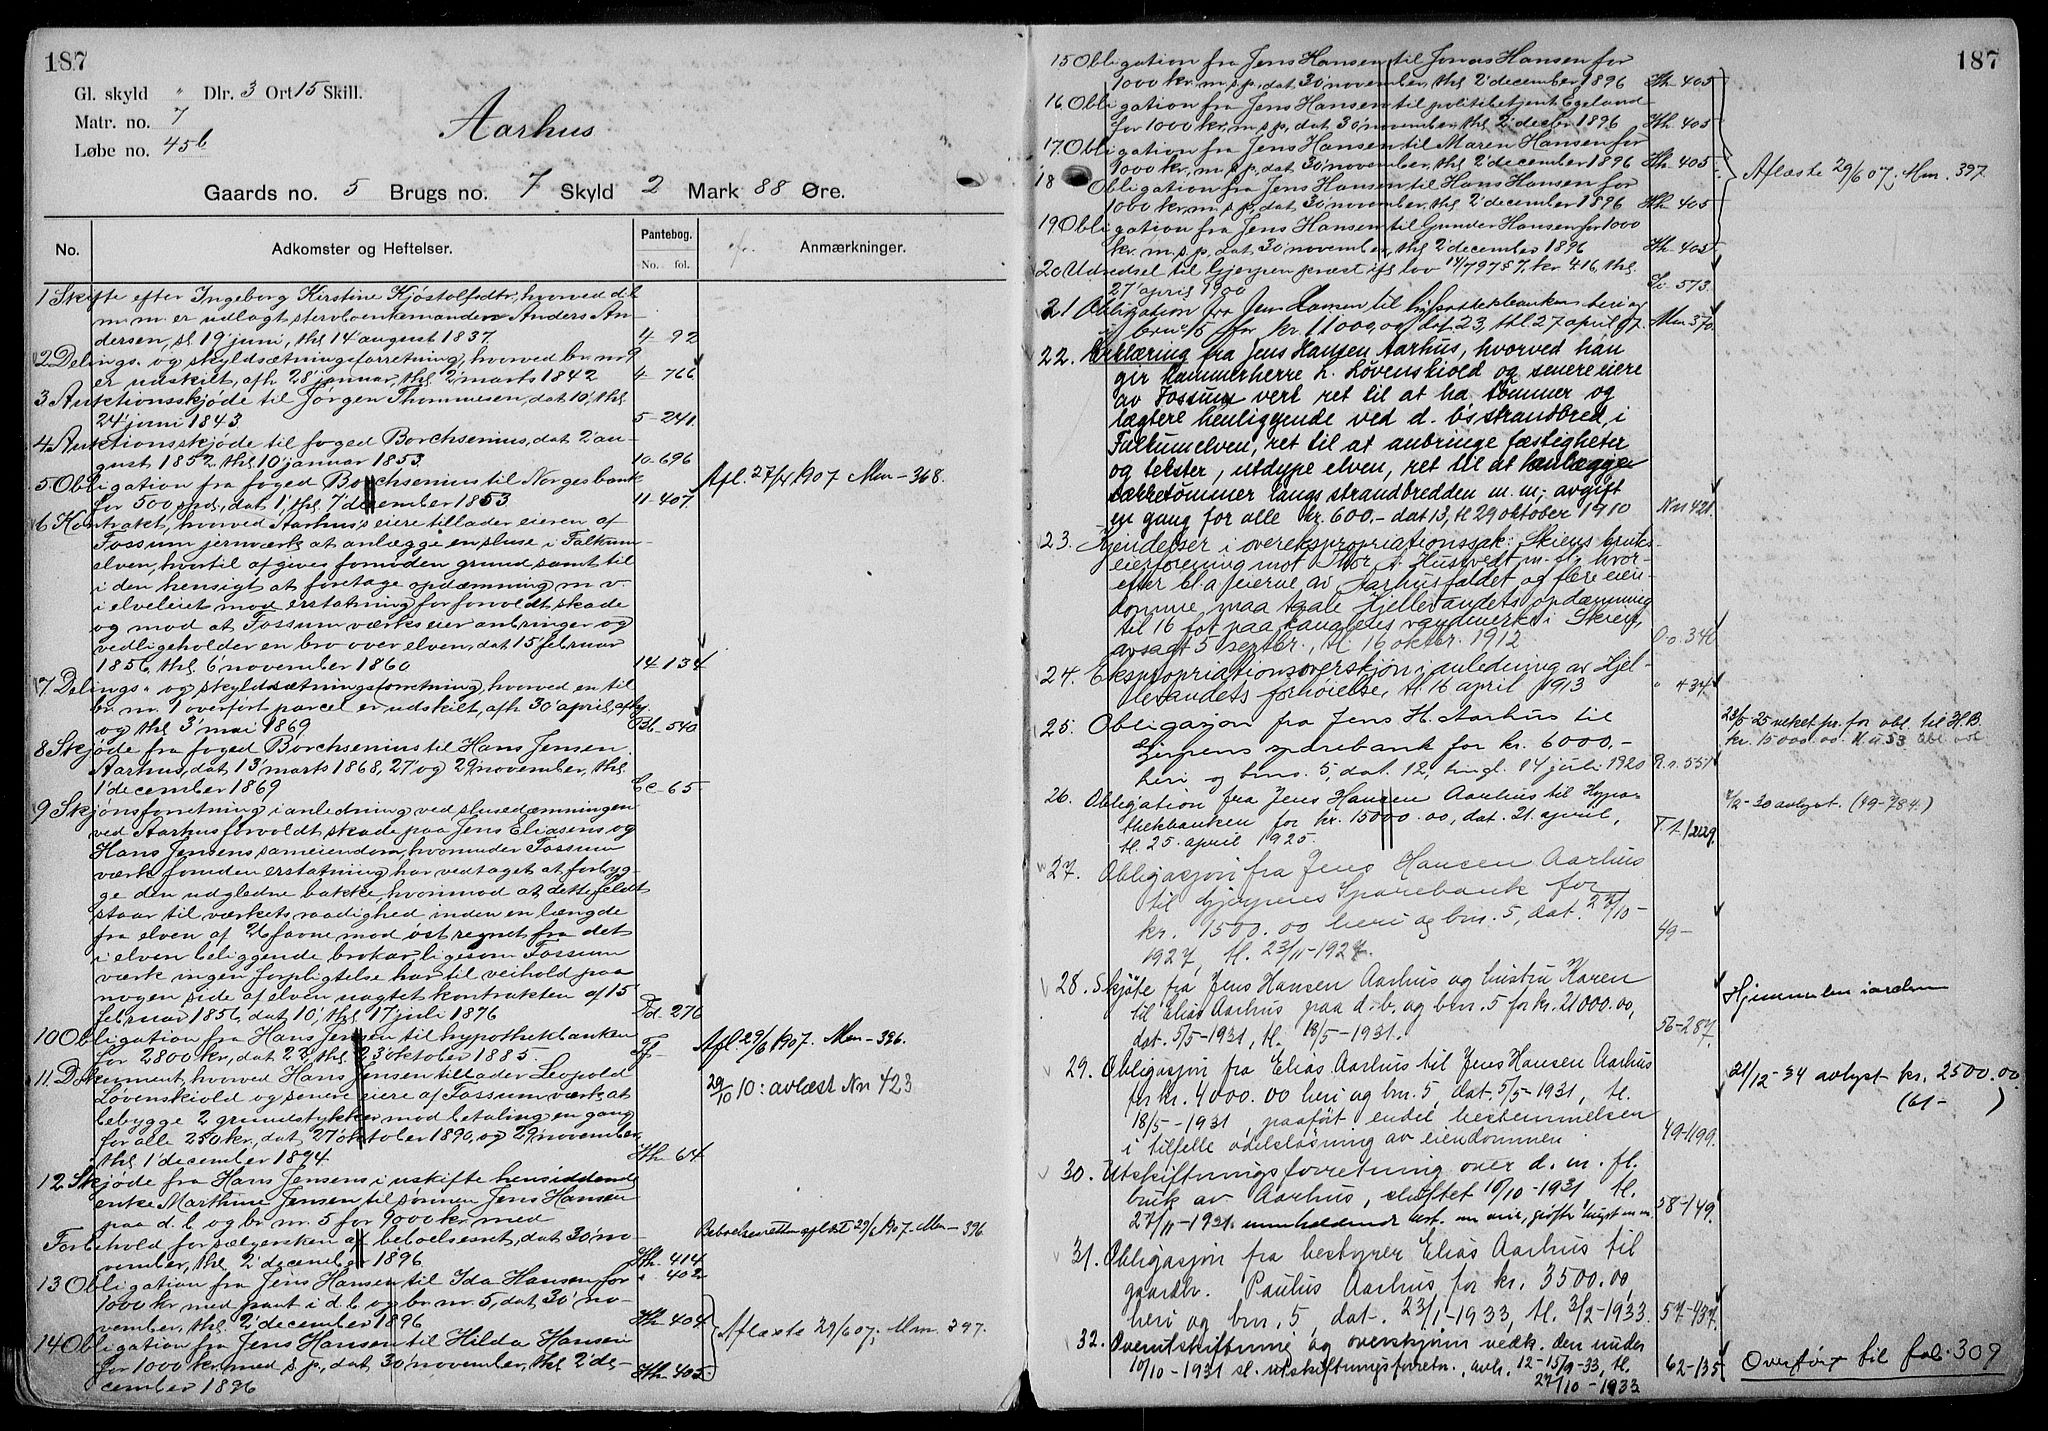 187
Gl. skyld " Dlr. 3 Ort 15 Skill.
Matr. no. 7
Løbe no. 45b
Aarhus
Gaards no. 5 Brugs no. 7 Skyld 2 Mark 88 Øre.
No. Adkomster og Heftelser. Pantebog. No. fol. Anmærkninger.
1 Skifte efter Ingeborg Kirstine Kjøstolfsdtr, hvorved d.b.
m.m. er udlagt stervboenkemanden Anders An-
dersen, sl. 19 juni, thl. 14 august 1837. 4 92
2 Delings- og skyldsætningsforretning, hvorved br. nr 9
er udskilt, afh. 28 januar, thl. 2 marts 1842 4 766
3 Auktionsskjøde til Jørgen Thommesen, dat. 10, thl.
24 juni 1843. 5-241
4 Auktionsskjøde til foged Borchsenius, dat. 2 au-
gust 1852, thl. 10 januar 1853. 10-696
5 Obligation fra foged Borchsenius til Norges bank
for 500 spd., dat. 1, thl. 7 december 1853 11-407. Afl. 27/4 1907 Mm-368.
6 Kontrakt, hvorved Aarhus's eiere tillader eieren af
Fossum jernværk at anlægge en sluse i Falkum-
elven, hvortil afgives fornøden grund, samt til
i den hensigt at foretage opdæmning m.v.
i elveleiet mod erstatning for forvoldt skade
og mod at Fossum værks eier anbringer og
vedligeholder en bro over elven, dat. 15 februar
1856, thl. 6 november 1860 14-134
7 Delings- og skyldsætningsforretning, hvorved en til
br. nr. 1 overført parcel er udskilt, afh. 30 april, afhj.
og thl. 3 mai 1869 Bb-540
8 Skjøde fra foged Borchsenius til Hans Jensen
Aarhus, dat. 13 marts 1868, 27 og 29 november, thl.
1 december 1869 Cc-65
9 Skjønsforretning i anledning ved slusedæmningen
ved Aarhus forvoldt skade paa Jens Eliasens og
Hans Jensens sameiendom, hvorunder Fossum
værk foruden erstatning har vedtaget at forbyg-
ge den udgledne bakke, hvorimod at dette feldt
staar til værkets raadighed inden en længde
fra elven af 26 favne mod øst regnet fra det
i elven beliggende brokar, ligesom Fossum
værk ingen forpligtelse har til veihold paa
nogen side af elven uagtet kontrakten af 15
februar 1856, dat. 10, thl. 17 juli 1876 Dd-276
10 Obligation fra Hans Jensen til hypothekbanken
for 2800 kr., dat. 22, thl. 23 oktober 1885. Ff- Afl. 29/6 1907. Mm-396.
11 Dokument, hvorved Hans Jensen tillader Leopold
Løvenskiold og senere eiere af Fossum værk at
bebygge 2 grundstykker mod betaling en gang
for alle 250 kr., dat. 27 oktober 1890, og 29 november,
thl. 1 december 1894 Hh-64 29/10 10: avlæst Nn 423
12 Skjøde fra Hans Jensens i uskifte hensiddende
enke Marthine Jensen til sønnen Jens Hansen
paa d.b. og br. nr. 5 for 9000 kr. med
Forbehold for sælgersken af beboelsesret, dat. 30 no-
vember, thl. 2 december 1896 Hh-414 Beboelsesretten aflæst 29/6 1907. Mm-396
13 Obligation fra Jens Hansen til Ida Hansen for " 402
1000 kr. med pant i d.b. og br. nr. 5, dat. 30 no-
vember, thl. 2 december 1896 Hh-404
14 Obligation fra Jens Hansen til Hilda Hansen Aflæste 29/6 07; Mm. 397.
for 1000 kr. med s.p., dat. 30 november, thl. 2 de-
cember 1896 Hh-405
187
15 Obligation fra Jens Hansen til Jonas Hansen for
1000 kr. m.s.p., dat. 30 november, thl. 2 december 1896 Hh 405
16 Obligation fra Jens Hansen til politibetjent Egeland
for 1000 kr. m.s.p., dat. 30 november, thl. 2 decbr 1896 Hh-405
17. Obligation fra Jens Hansen til Maren Hansen for
1000 kr., m.s.p., dat. 30 november, thl. 2 december 1896 Hh. 405 Aflæste 29/6 07; Mm. 397
18 Obligation fra Jens Hansen til Hans Hansen for
1000 kr., m.s.p., dat. 30 november, thl. 2 december 1896 Hh 405
19 Obligation fra Jens Hansen til Gunder Hansen for 1000
kr. m.s.p., dat. 30 november, thl. 2 december 1896 Hh-405
20 Udredsel til Gjerpen præst ifl. lov 14/7 97 § 7, kr. 416, thl.
27 april 1900 573.
21 Obligation fra Jens Hansen til hypothekbanken heri og
brno 5 for kr. 11000,00 dat 23, thl. 27 april 07. Mm 370.
22. Erklæring fra Jens Hansen Aarhus, hvorved han
gir kammerherre L. Løvenskiold og senere eiere
av Fossum verk ret til at ha tømmer og
lægtere henliggende ved d. b's strandbred, i
Falkumelven, ret til at anbringe fæstigheter
og tekster, utdype elven, ret til at henlægge
særretømmer langs strandbredden m.m.; avgift
en gang for alle kr. 600.- dat 13, tl 29 oktober 1910 Nn 421.
23. Kjendelser i overekspropriationssak: Skiens bruks-
eierforening mot Thor A. Hustvedt m.fl., hvor-
efter bl.a. eierne av Aarhusfaldet og flere eien-
domme maa taale Hjellevandets opdæmning
til 16 fot paa kanalens vandmerke i Skien,
avsagt 5 septbr., tl 16 oktbr. 1912. Oo. 346
24. Ekspropriationsoverskjøn i anledning av Hjel-
levandets forhøielse, tl. 16 april 1913 " 434
25. Obligasjon fra Jens H. Aarhus til
Gjerpens sparebank for kr. 6000.-
heri og brno. 5, dat. 12, tingl. 14 juli 1920 R.r. 551 23/5-25 veket pr. for obl. til H.B.
kr. 15000.00
26. Obligation fra Jens Hansen Aarhus til Hypo-
thekbanken for kr. 15000.00, dat. 21. april,
tl. 25. april 1925. -30 avlyst. (49-784.)
27. Obligasjon fra Jens Hansen Aarhus
til Gjerpens Sparebank for
kr. 1500.00 heri og bnr. 5, dat. 22/10-
1927, tl. 23/11-1927. 49-
28. Skjøte fra Jens Hansen Aarhus og hustru Karen
til Elias Aarhus paa d.b. og bnr. 5 for kr. 21000.00,
dat. 5/5-1931, tl. 18/5-1931. 56-287. Hjemmelen i orden
29. Obligasjon fra Elias Aarhus til Jens Hansen Aarhus
for kr. 4000.00 heri og bnr. 5, dat. 5/5-1931, tl. 21/12-34 avlyst kr. 2500.00
18/5-1931, paaført endel bestemmelser (61- )
i tilfelle odelsløsning av eiendommen. 49-1199.
30. Utskiftningsforretning over d.m.fl.
bruk av Aarhus, sluttet 10/10-1931 tl.
27/11-1931. 58-149.
31. Obligasjon fra bestyrer Elias Aarhus til
gaardbr. Paulus Aarhus for kr. 3500.00,
heri og bnr. 5, dat. 23/1-1933, tl. 3/2-1933. 57-437.
32. Overutskiftning og overskjønn vedk. den under
10/10-1931 sl. utskiftningsforretn., avh. 12-15/9-33, tl. 62-135 Overført til fol. 309
27/10-1933